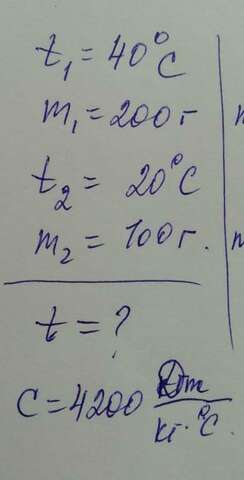 t₁ = 40°C
m₁ = 200 г
t₂ = 20°C
m₂ = 100 г.
t = ?
C = 4200 Дж/кг·°C.